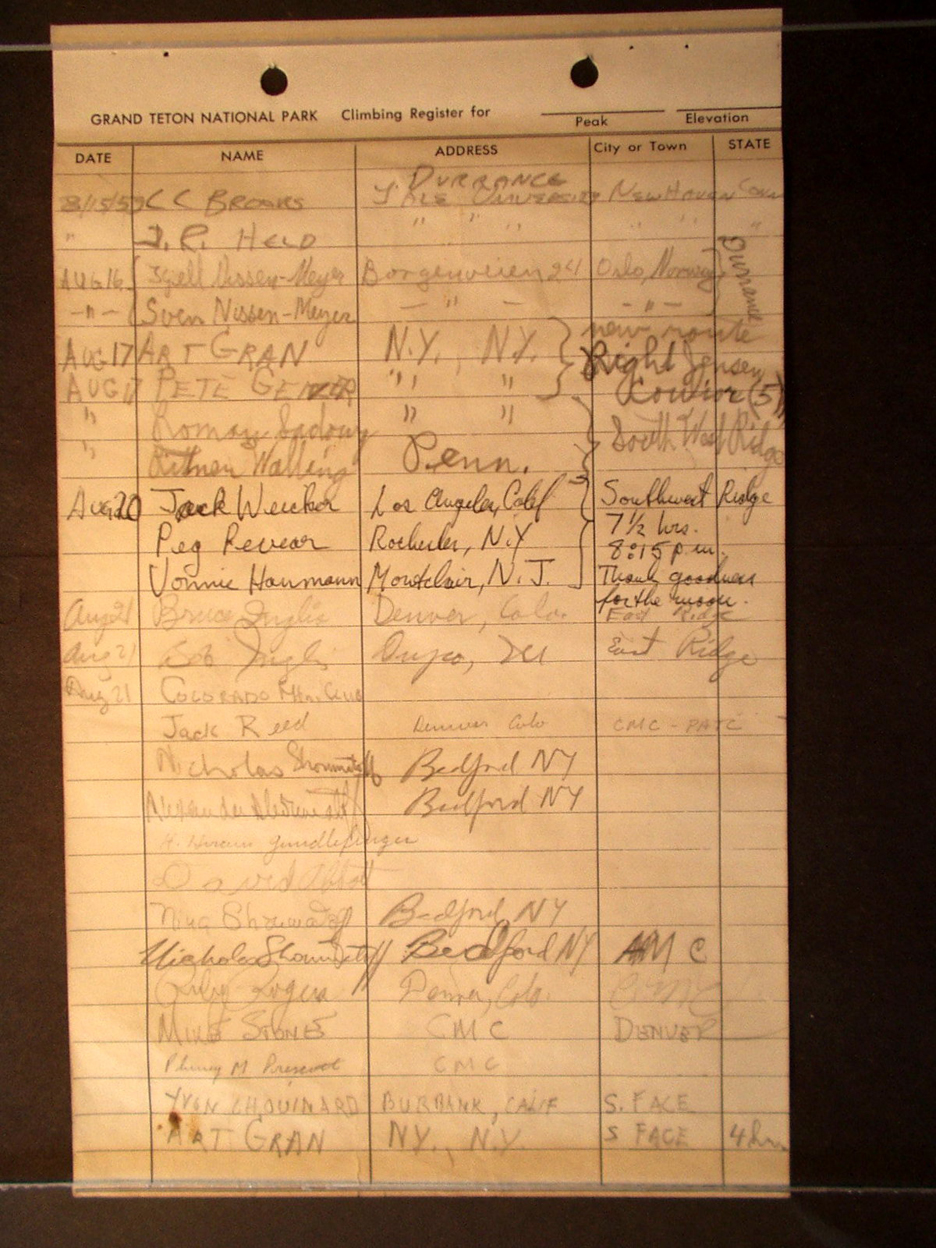 GRAND TETON NATIONAL PARK Climbing Register for
Peak Elevation
DATE NAME ADDRESS City or Town STATE
DURRANCE
8/15/59 C C BROOKS YALE UNIVERSITY New Haven Conn
" J. R. HELD " " " " " "
Aug 16 Kjell Nissen-Meyer Borgenveien 241 Oslo, Norway Durrance
- " - Sven Nissen-Meyer - " - - " -
new route
AUG 17 ART GRAN N.Y., N.Y. Right Jensen
AUG 17 PETE " " (5)
" Roman Sadowy " " South West Ridge
" Walling Penn.
Aug 20 Jack Weicker Los Angeles, Calif Southwest Ridge
7 1/2 hrs.
Peg Revear Rochester, N.Y 8:15 p.m.
Vonnie Hanmann Montclair, N.J. Thank goodness
for the moon.
Aug 21 Bruce Inglis Denver, Colo East Ridge
Aug 21 Bob Inglis East Ridge
Aug 21 COLORADO Mtn. Club
Jack Reed Denver Colo CMC - PATC
Nicholas Shoumatoff Bedford NY
Alexander Shoumatoff Bedford NY
David Abbott
Nina Shoumatoff Bedford NY
Nicholas Shoumatoff Bedford NY AMC
Ruby Rogers Denver, Colo. CMC
MIKE STONE CMC DENVER
M Prescott CMC
YVON CHOUINARD BURBANK, CALIF S. FACE
ART GRAN NY., N.Y. S FACE 4 hr